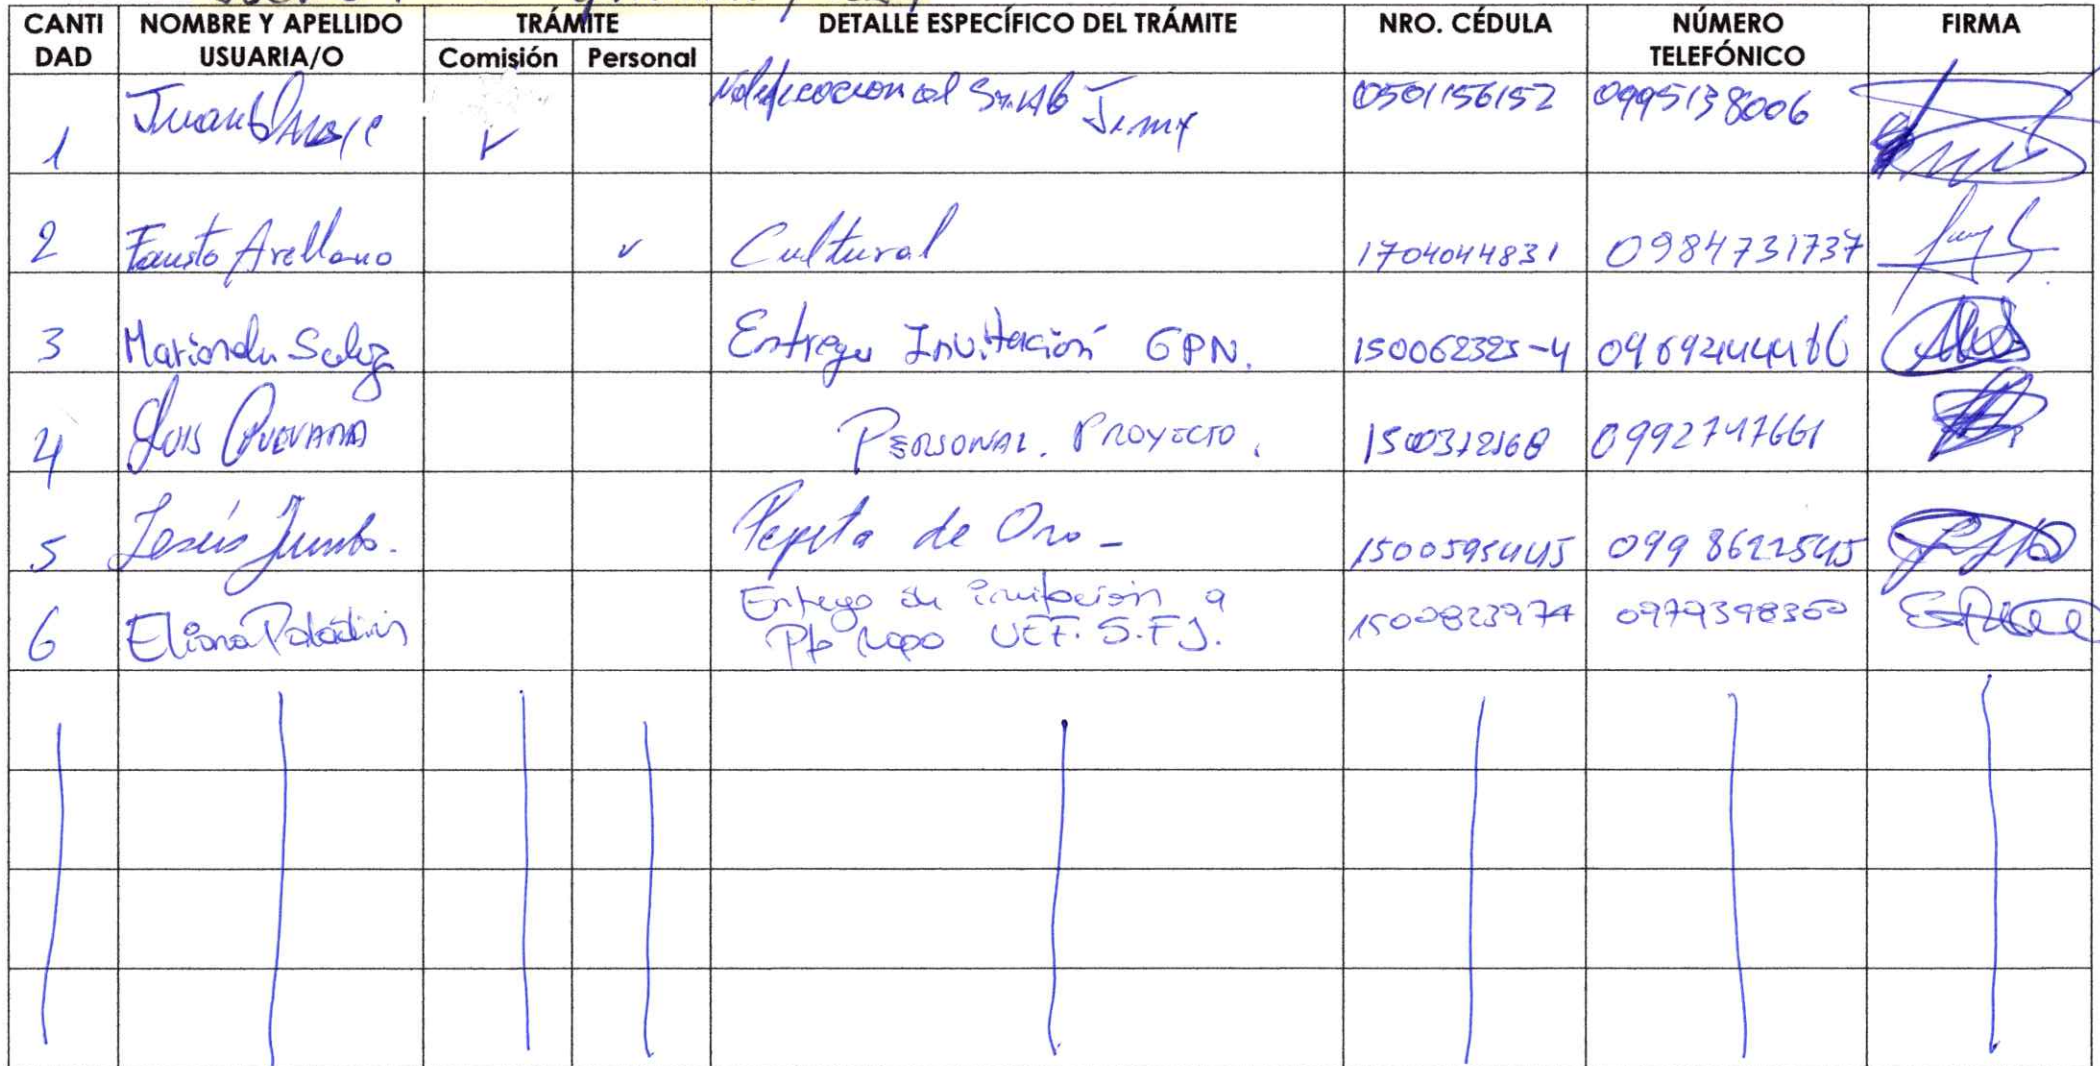 CANTI DAD NOMBRE Y APELLIDO USUARIA/O TRÁMITE Comisión Personal DETALLE ESPECÍFICO DEL TRÁMITE NRO. CÉDULA NÚMERO TELEFÓNICO FIRMA
1 Juan ✓ al Jenny 0501156152 0995138006
2 Fausto Arellano ✓ Cultural 1704044831 0984731737
3 Entrega Invitación GPN. 150062325-4
4 Luis PERSONAL. PROYECTO. 0992747661
5 Jesús Jumbo. Pepita de Oro - 0998622545
6 Eliana Paladines Entrega de invitación a UEF. S.F.J. 1500823974 0979398350